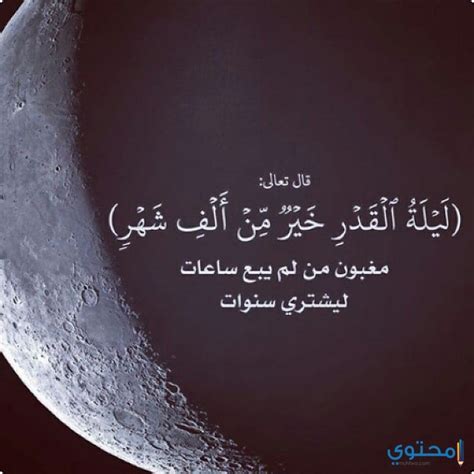 قال تعالى:
(لَيْلَةُ ٱلْقَدْرِ خَيْرٌ مِّنْ أَلْفِ شَهْرٍ)
مغبون من لم يبع ساعات
ليشتري سنوات
محتوى